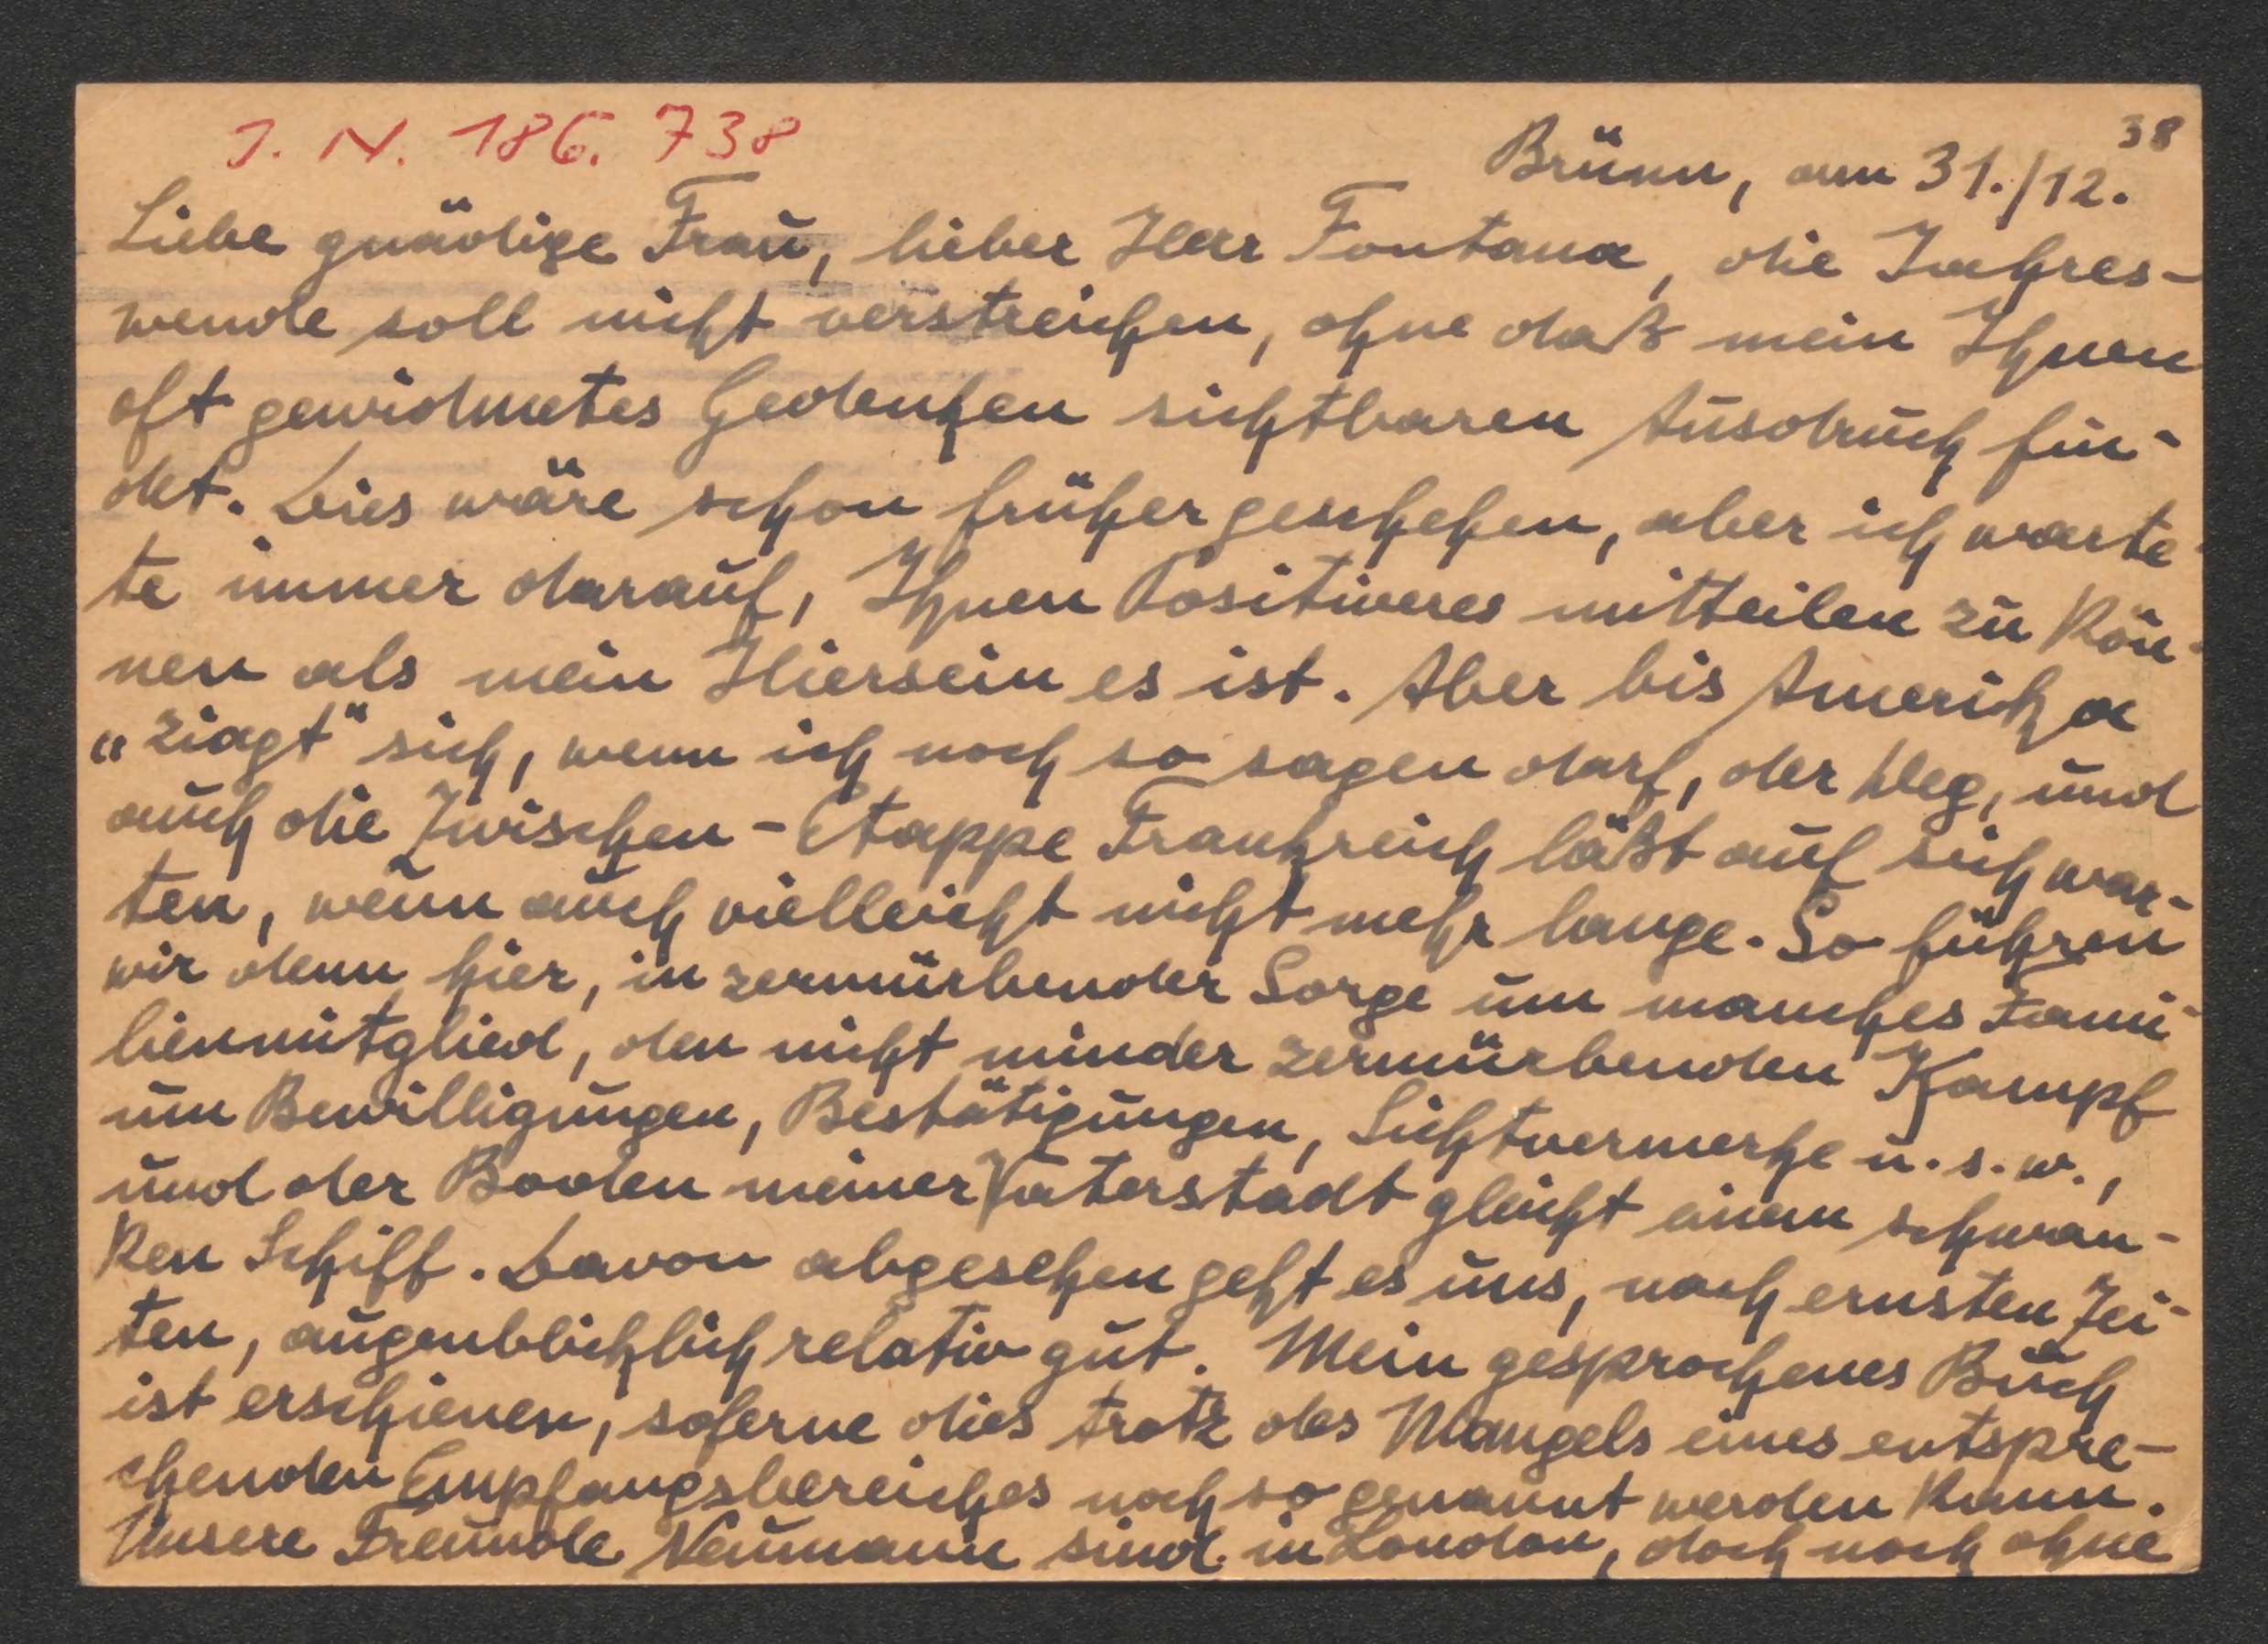 J. N. 186. 738
Brünn, am 31./12. 38
Liebe gnädige Frau, lieber Herr Fontana, die Jahres-
wende soll nicht verstreichen, ohne daß mein Ihnen
oft gewidmetes Gedenken sichtbaren Ausdruck fin-
det. Dies wäre schon früher geschehen, aber ich warte-
te immer darauf, Ihnen Positiveres mitteilen zu kön-
nen als mein Hiersein es ist. Aber bis Amerika
„ziagt“ sich, wenn ich noch so sagen darf, der Weg, und
auch die Zwischen-Etappe Frankreich läßt auf sich war-
ten, wenn auch vielleicht nicht mehr lange. So führen
wir denn hier, in zermürbender Sorge um manches Fami-
lienmitglied, den nicht minder zermürbenden Kampf
um Bewilligungen, Bestätigungen, Sichtvermerke u.s.w.,
und der Boden meiner Vaterstadt gleicht einem schwan-
ken Schiff. Davon abgesehen geht es uns, nach ernsten Zei-
ten, augenblicklich relativ gut. Mein gesprochenes Buch
ist erschienen, soferne dies trotz des Mangels eines entspre-
chenden Empfangsbereiches noch so genannt werden kann.
Unsere Freunde Neumann sind in London, doch noch ohne